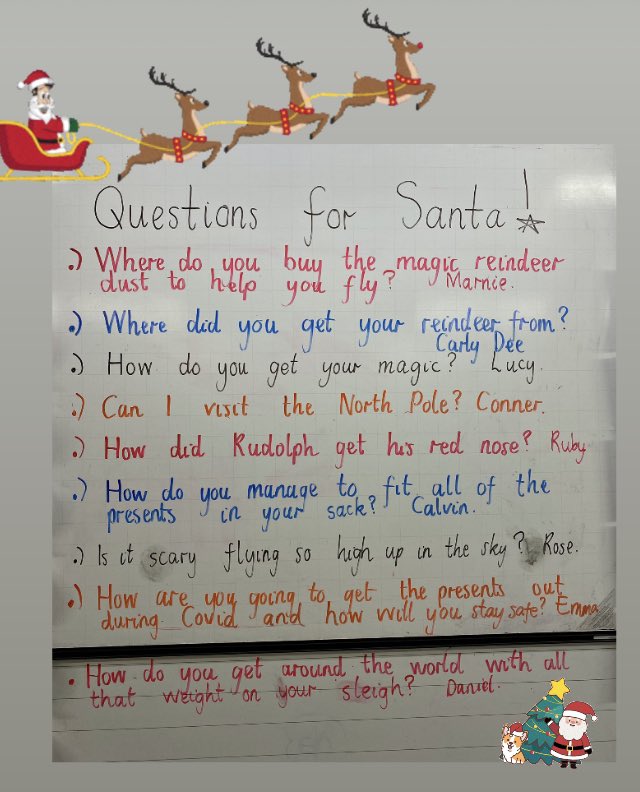 Questions for Santa!
.) Where do you buy the magic reindeer
dust to help you fly? Marnie.
.) Where did you get your reindeer from?
Carly Dee
.) How do you get your magic? Lucy.
.) Can I visit the North Pole? Conner.
.) How did Rudolph get his red nose? Ruby
.) How do you manage to fit all of the
presents in your sack? Calvin.
.) Is it scary flying so high up in the sky? Rose.
.) How are you going to get the presents out
during Covid and how will you stay safe? Emma
• How do you get around the world with all
that weight on your sleigh? Daniel.